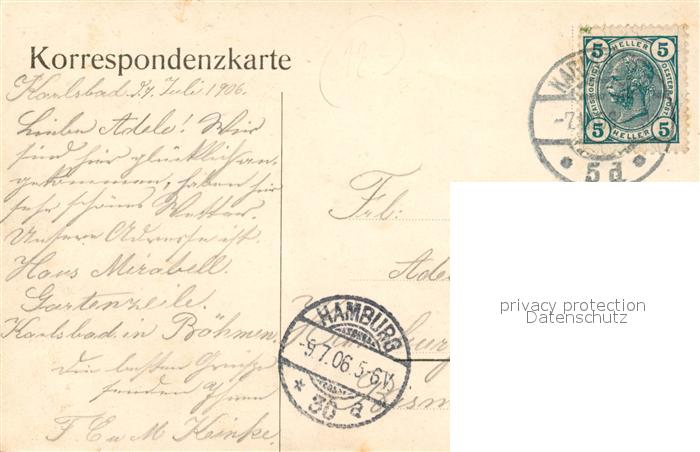 Korrespondenzkarte
Karlsbad d. 7. Juli 1906.
Liebe Adele! Wir
sind hier glücklich an-
gekommen, haben hier
sehr schönes Wetter.
Unsere Adresse ist.
Haus Mirabell.
Gartenzeile.
Karlsbad in Böhmen.
Die besten Grüße
senden Ihnen
F. C u M Heinke.
5 HELLER 5
KAIS. KOENIGL.
OESTERR. POST
5 HELLER 5
KAR
-7.
5d
Frl:
Ade
Hamburg
Bism
HAMBURG
-9.7.06.5-6V.
* 30 a
privacy protection
Datenschutz